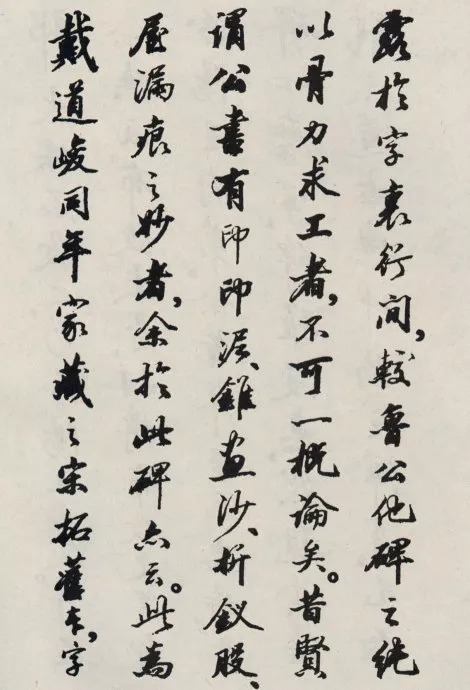 露於字裏行間，較魯公他碑之純
以骨力求工者，不可一概論矣。昔賢
謂公書有印印泥、錐畫沙、折釵股、
屋漏痕之妙者，余於此碑亦云。此為
戴道峻同年家藏之宋拓舊本，字